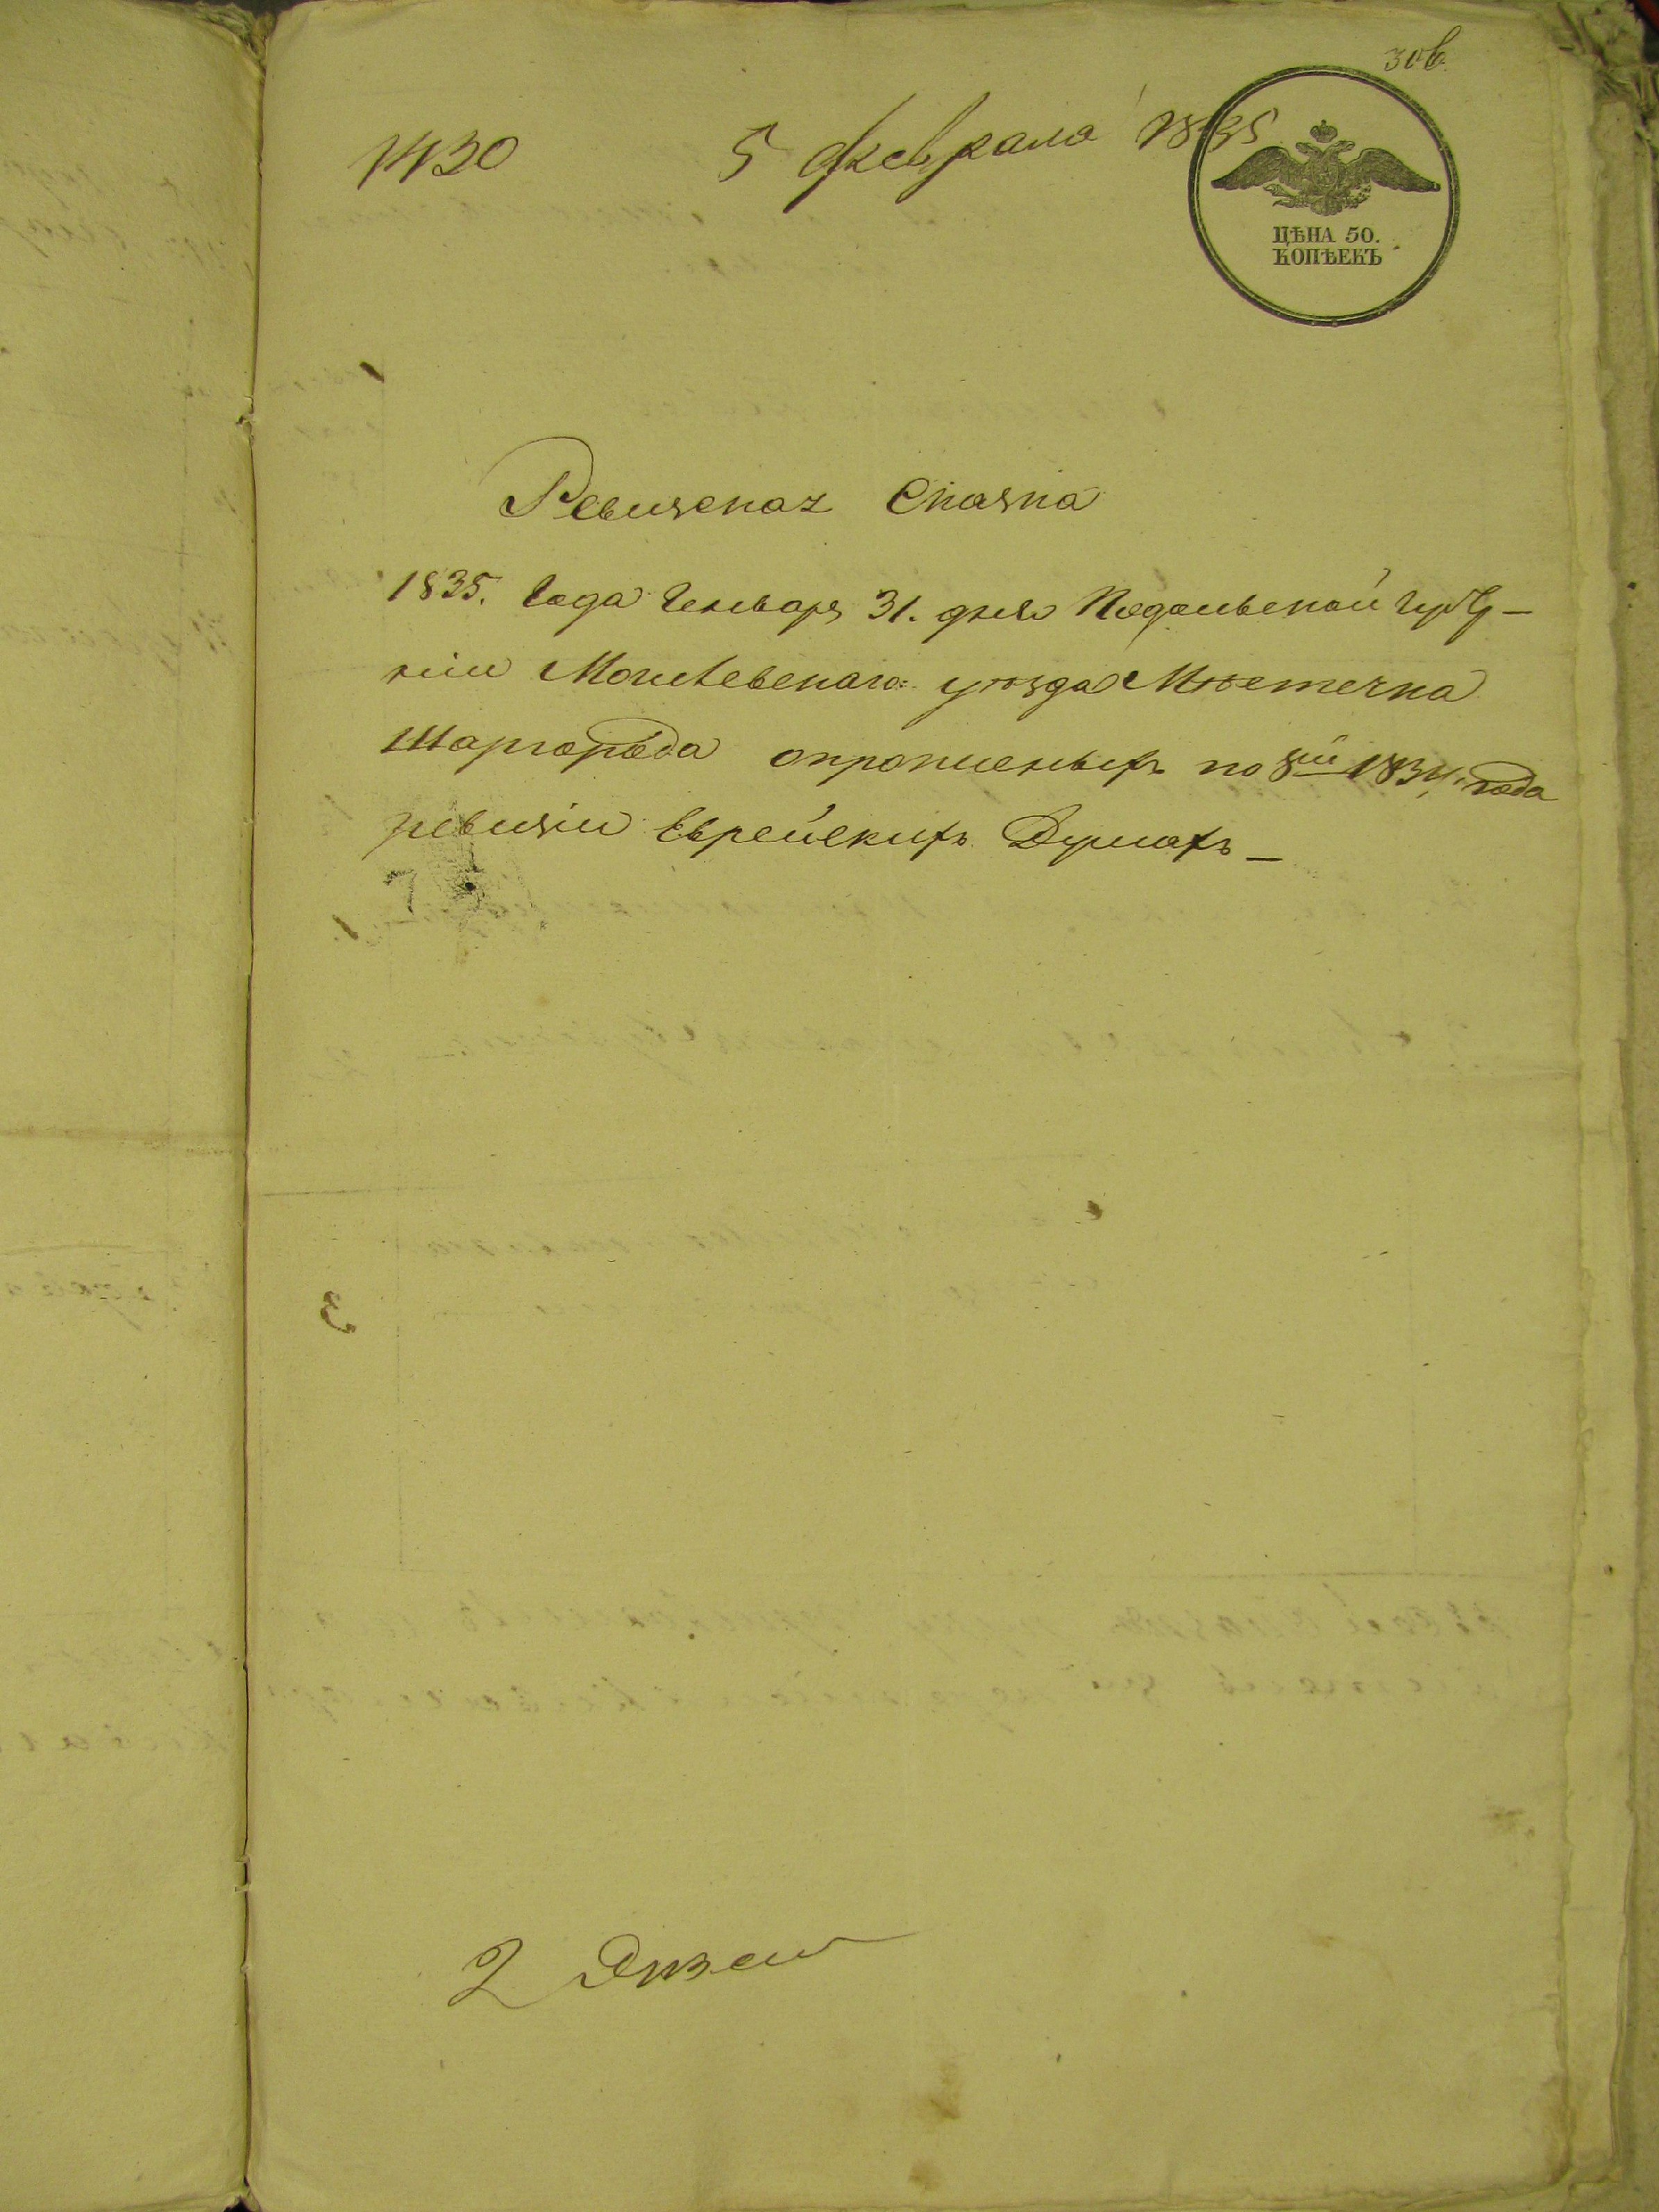 306
1430 5 февраля 1835
ЦѢНА 50.
КОПѢЕКЪ
Ревизская Сказка
1835. Года Генваря 31. дня Подольской Губер-
нiи Могилевскаго уѣзда Мѣстечка
Шаргорода о пропущенныхъ по 8й 1834, года
ревизiи Еврейскихъ Душахъ —
2